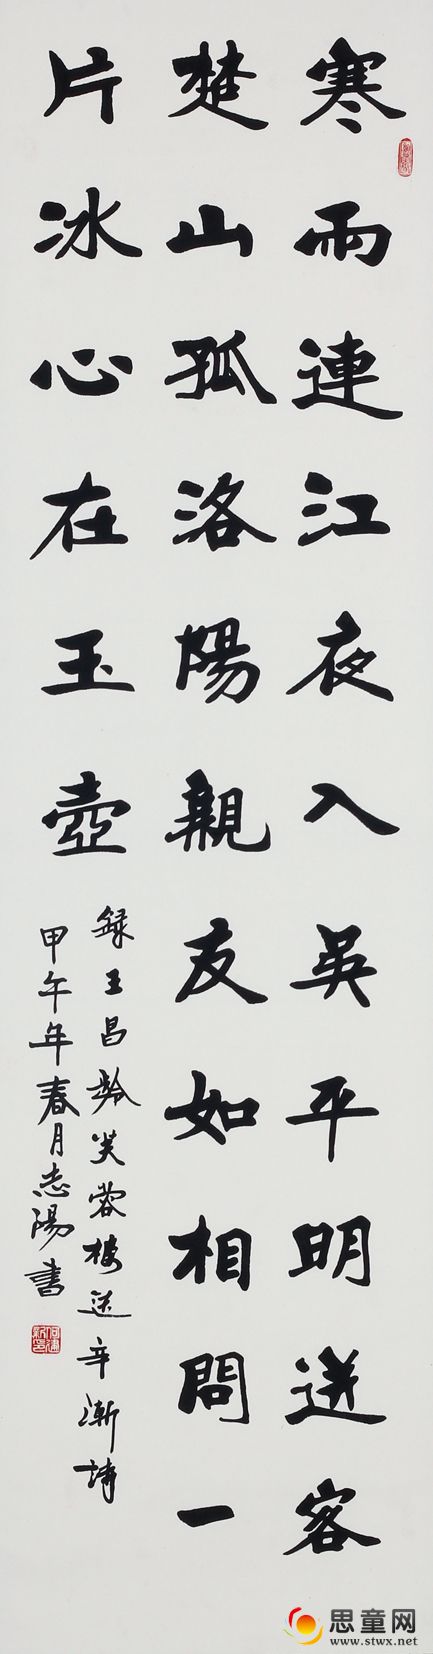 寒雨連江夜入吳平明送客
楚山孤洛陽親友如相問一
片冰心在玉壺
録王昌齡芙蓉樓送辛漸詩
甲午年春月志陽書
思童网
www.stwx.net